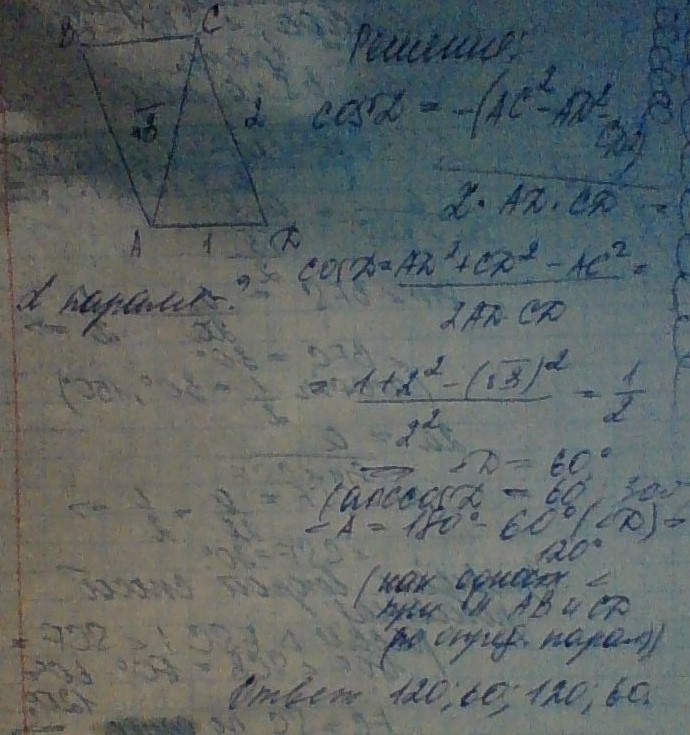 B C
Решение:
√3 2
cos D = -(AC² - AD² - CD²)
2 · AD · CD =
A 1 D
cos D = AD² + CD² - AC² =
2AD · CD
∠ парал-?
= 1 + 2² - (√3)² = 1
2² 2
∠D = 60°
(arccos D = 60
∠A = 180° - 60° (∠D) =
120°
(как одност <
при || AB и CD
(по опред. парал))
Ответ 120; 60; 120; 60.